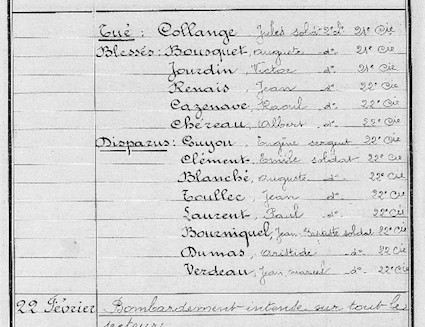 Tué : Collange, Jules soldt 2e cl. 21e Cie
Blessés : Bousquet, Auguste do 21e Cie
Jourdin, Victor do 21e Cie
Renais, Jean do 22e Cie
Cazenove, Raoul do 22e Cie
Chéreau, Albert do 22e Cie
Disparus : Guyou, Eugène sergent 22e Cie
Clément, Emile soldat 22e Cie
Blanché, Auguste do 22e Cie
Toullec, Jean do 22e Cie
Laurent, Paul do 22e Cie
Bourniquel, Jean Baptiste soldat 22e Cie
Dumas, Aristide do 22e Cie
Verdeau, Jean Marcel do 22e Cie
22 Février Bombardement intense sur tout le
secteur.